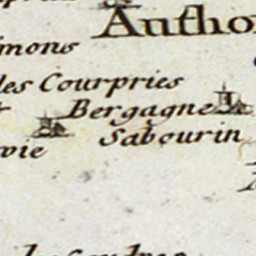 Autho
imons
les Courpries
Bergagne
Sabourin
vie